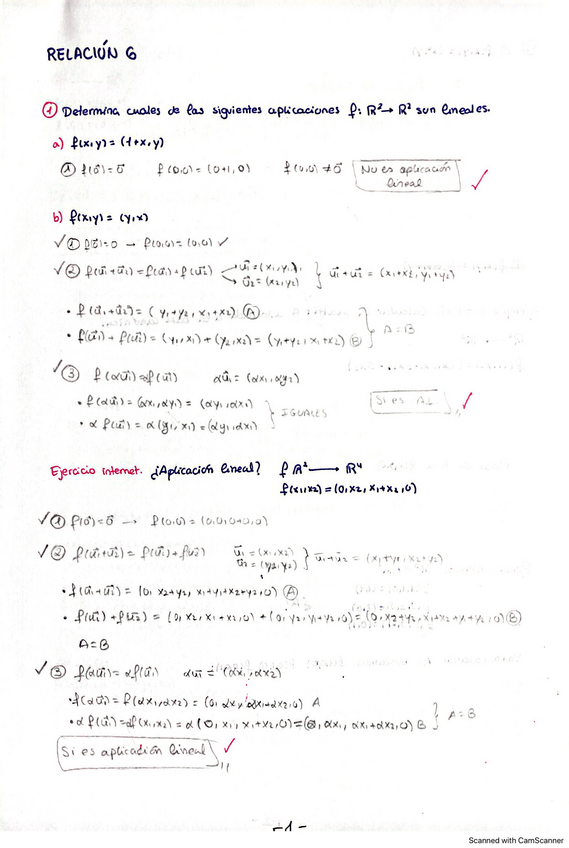 RELACIÓN 6
① Determina cuales de las siguientes aplicaciones f: R² → R² son lineales.
a) f(x,y) = (1+x,y)
① f(0⃗) = 0⃗ f(0,0) = (0+1,0) f(0,0) ≠ 0⃗ No es aplicación lineal ✓
b) f(x,y) = (y,x)
✓① f(0⃗)=0 → f(0,0) = (0,0) ✓
✓② f(u⃗1+u⃗2) = f(u⃗1)+f(u⃗2) u⃗1 = (x1,y1) u⃗2 = (x2,y2) } u⃗1+u⃗2 = (x1+x2, y1+y2)
• f(u⃗1+u⃗2) = (y1+y2, x1+x2) Ⓐ
• f(u⃗1)+f(u⃗2) = (y1,x1)+(y2,x2) = (y1+y2, x1+x2) Ⓑ } A=B
✓③ f(αu⃗1)=αf(u⃗1) αu⃗1 = (αx1, αy2)
• f(αu⃗1) = (αx1,αy1) = (αy1,αx1)
• α f(u⃗1) = α(y1,x1) = (αy1,αx1) } IGUALES
Si es AL ✓
Ejercicio internet. ¿Aplicación lineal? f R² → R⁴
f(x1,x2) = (0,x2,x1+x2,0)
✓① f(0⃗)=0⃗ → f(0,0) = (0,0,0+0,0)
✓② f(u⃗1+u⃗2) = f(u⃗1)+f(u⃗2) u⃗1 = (x1,x2) u⃗2 = (y1,y2) } u⃗1+u⃗2 = (x1+y1, x2+y2)
• f(u⃗1+u⃗2) = (0, x2+y2, x1+y1+x2+y2,0) Ⓐ
• f(u⃗1)+f(u⃗2) = (0,x2,x1+x2,0) + (0,y2,y1+y2,0) = (0,x2+y2,x1+x2+y1+y2,0) Ⓑ
A=B
✓③ f(αu⃗1) = αf(u⃗1) αu⃗1 = (αx1,αx2)
• f(αu⃗1) = f(αx1,αx2) = (0,αx, αx1+αx2,0) A
• α f(u⃗1) = αf(x1,x2) = α(0,x1,x1+x2,0) = (0,αx1,αx1+αx2,0) B } A=B
Si es aplicación lineal ✓
-1-
Scanned with CamScanner